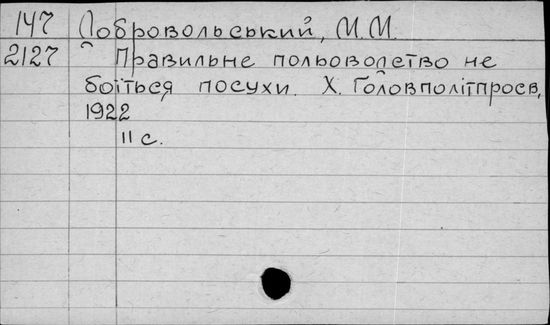 147 Добровольський, М.М.
2127 Правильне польоводство не
боїться посухи. Х. Головполітпросв,
1922
11 с.